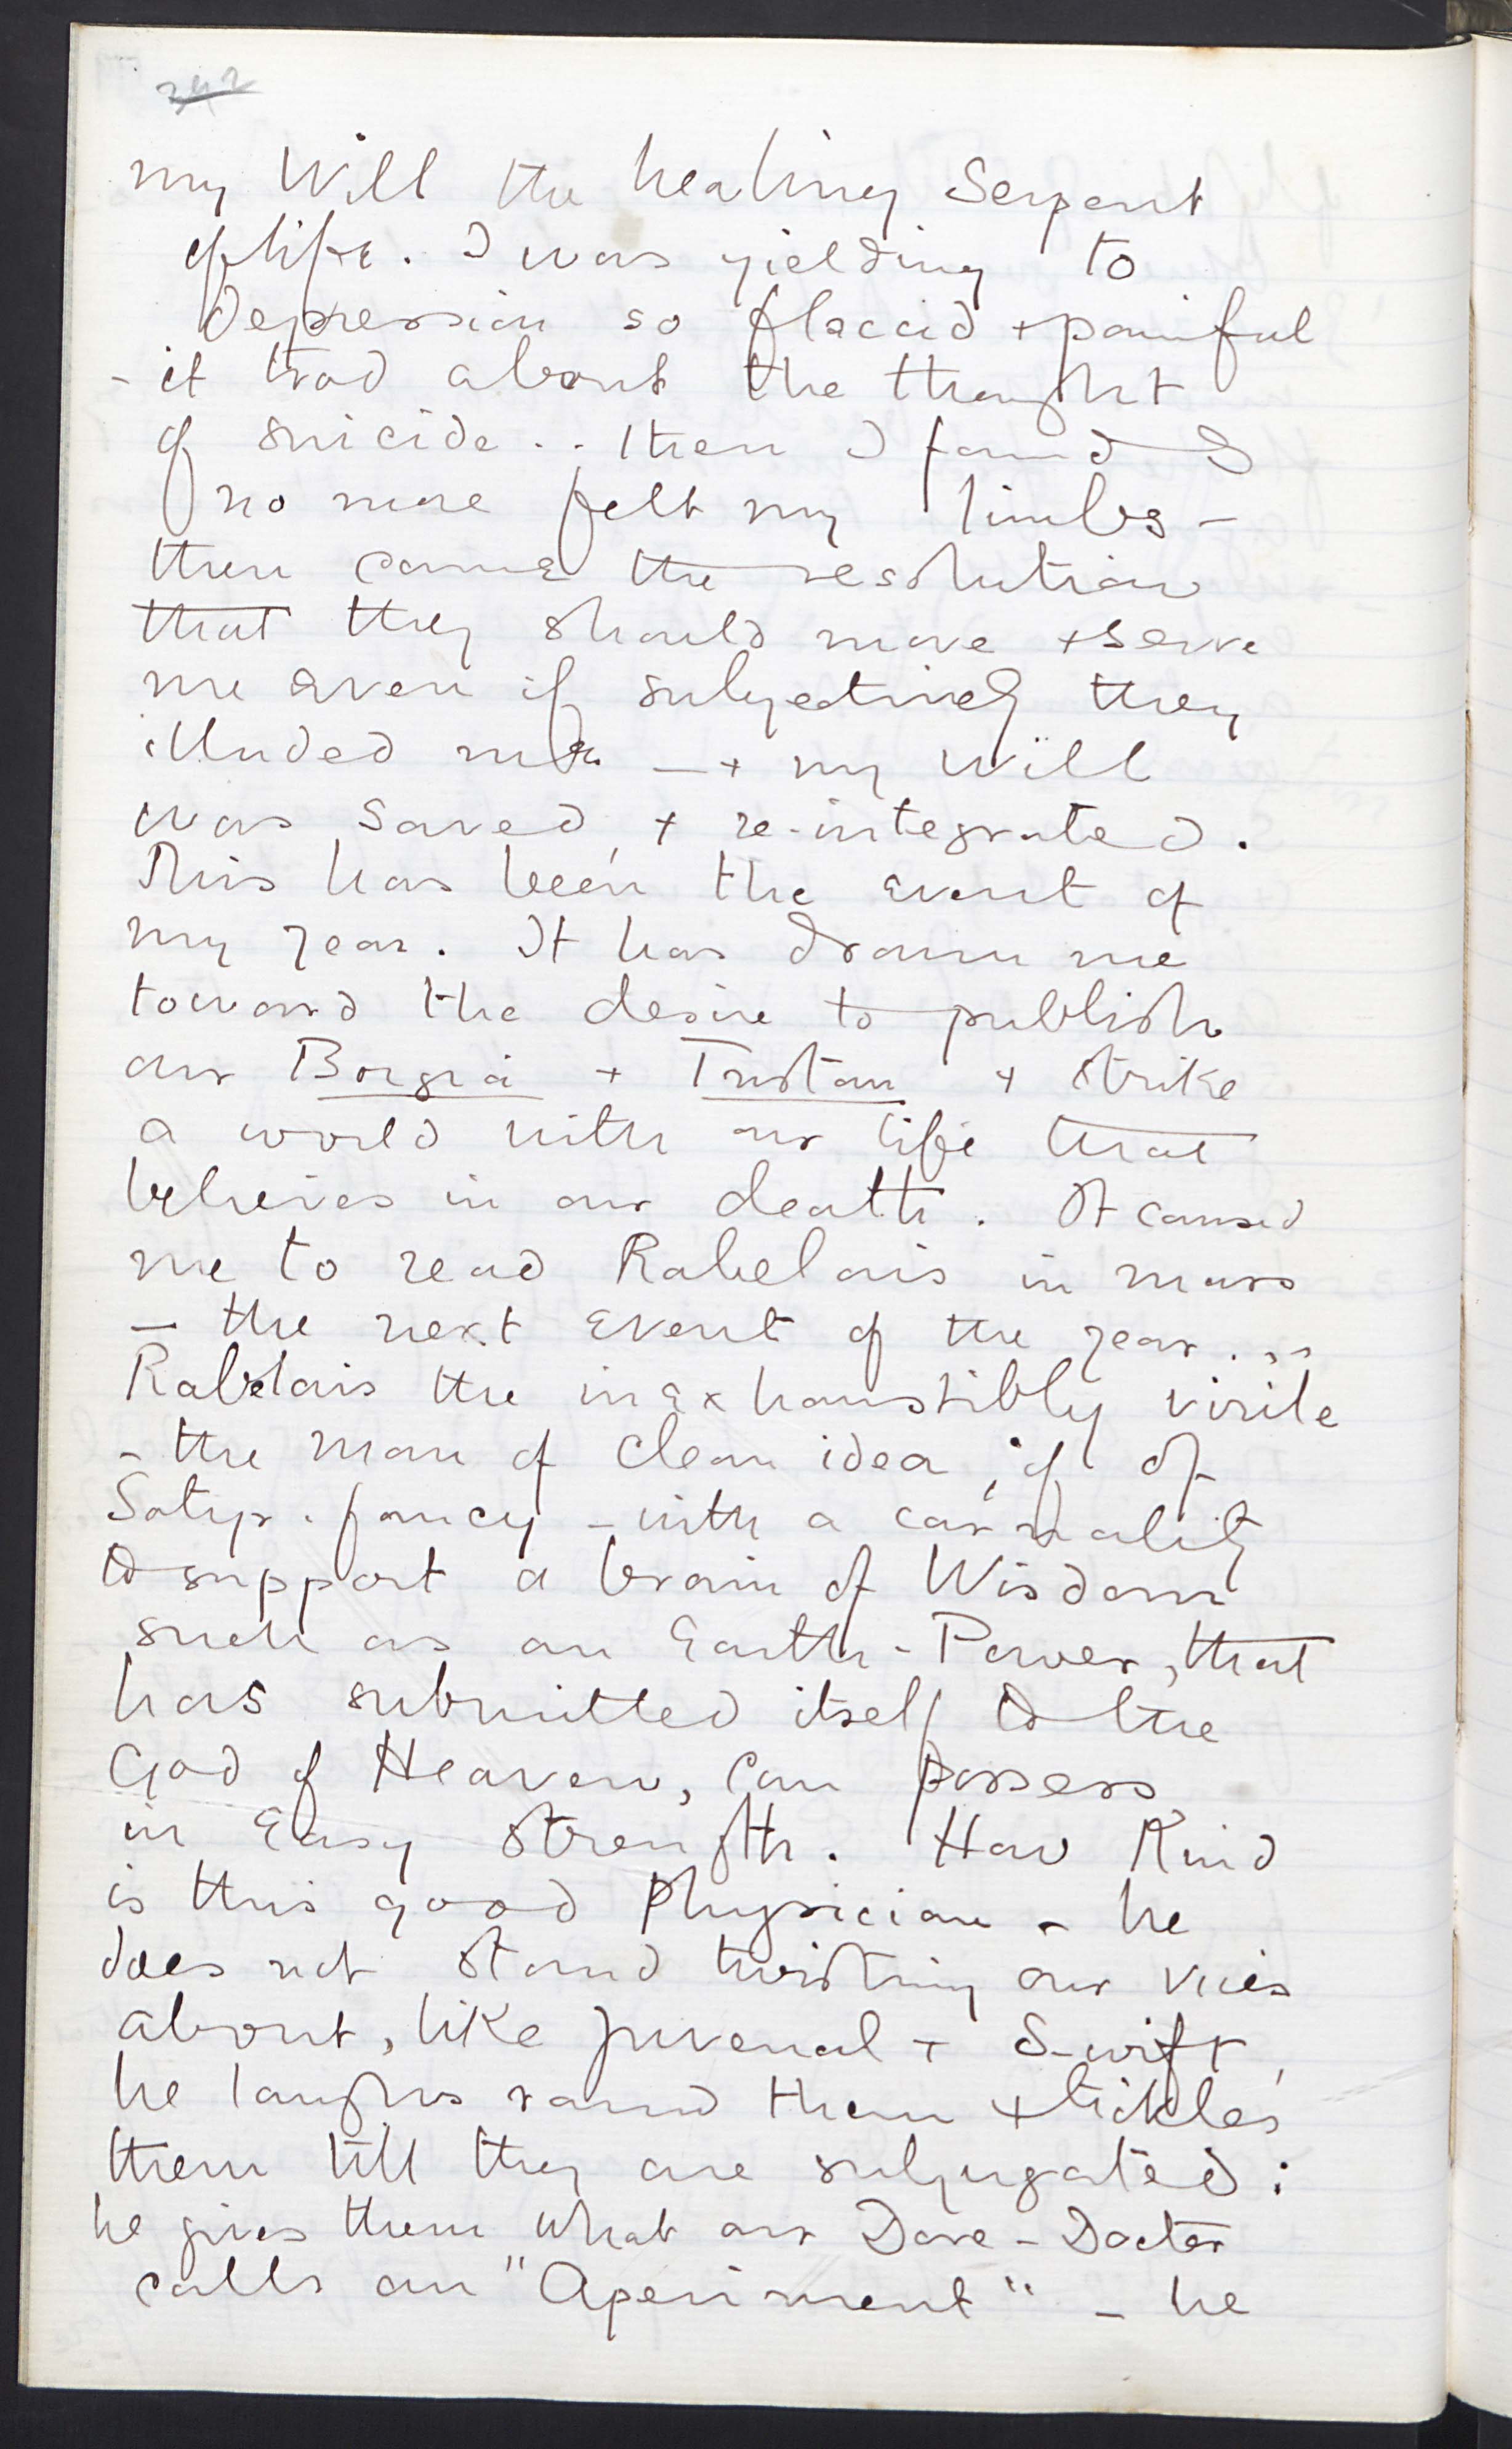 342
my Will the healing Serpent
of life. I was yielding to
depression so flaccid + painful
- it trod about the thought
of suicide .. then I found I
no more felt my limbs -
then came the resolution
that they should move + serve
me even if subjectively they
illuded me - + my Will
was saved, + re-integrated.
This has been the event of
my year. It has drawn me
toward the desire to publish
our Borgia + Tristan + strike
a world with our life that
believes in our death. It caused
me to read Rabelais in mass
- the next event of the year...
Rabelais the inexhaustibly virile
- the man of clean idea, if of
Satyr-fancy - with a carnality
to support a brain of Wisdom
such as an Earth-Power, that
has submitted itself to the
God of Heaven, can possess
in easy strength. How Kind
is this good Physician - he
does not stand twisting our vices
about, like Juvenal + Swift,
he laughs round them + tickles
them till they are subjugated:
he gives them what our Dove-Doctor
calls an "Aperiment" - he